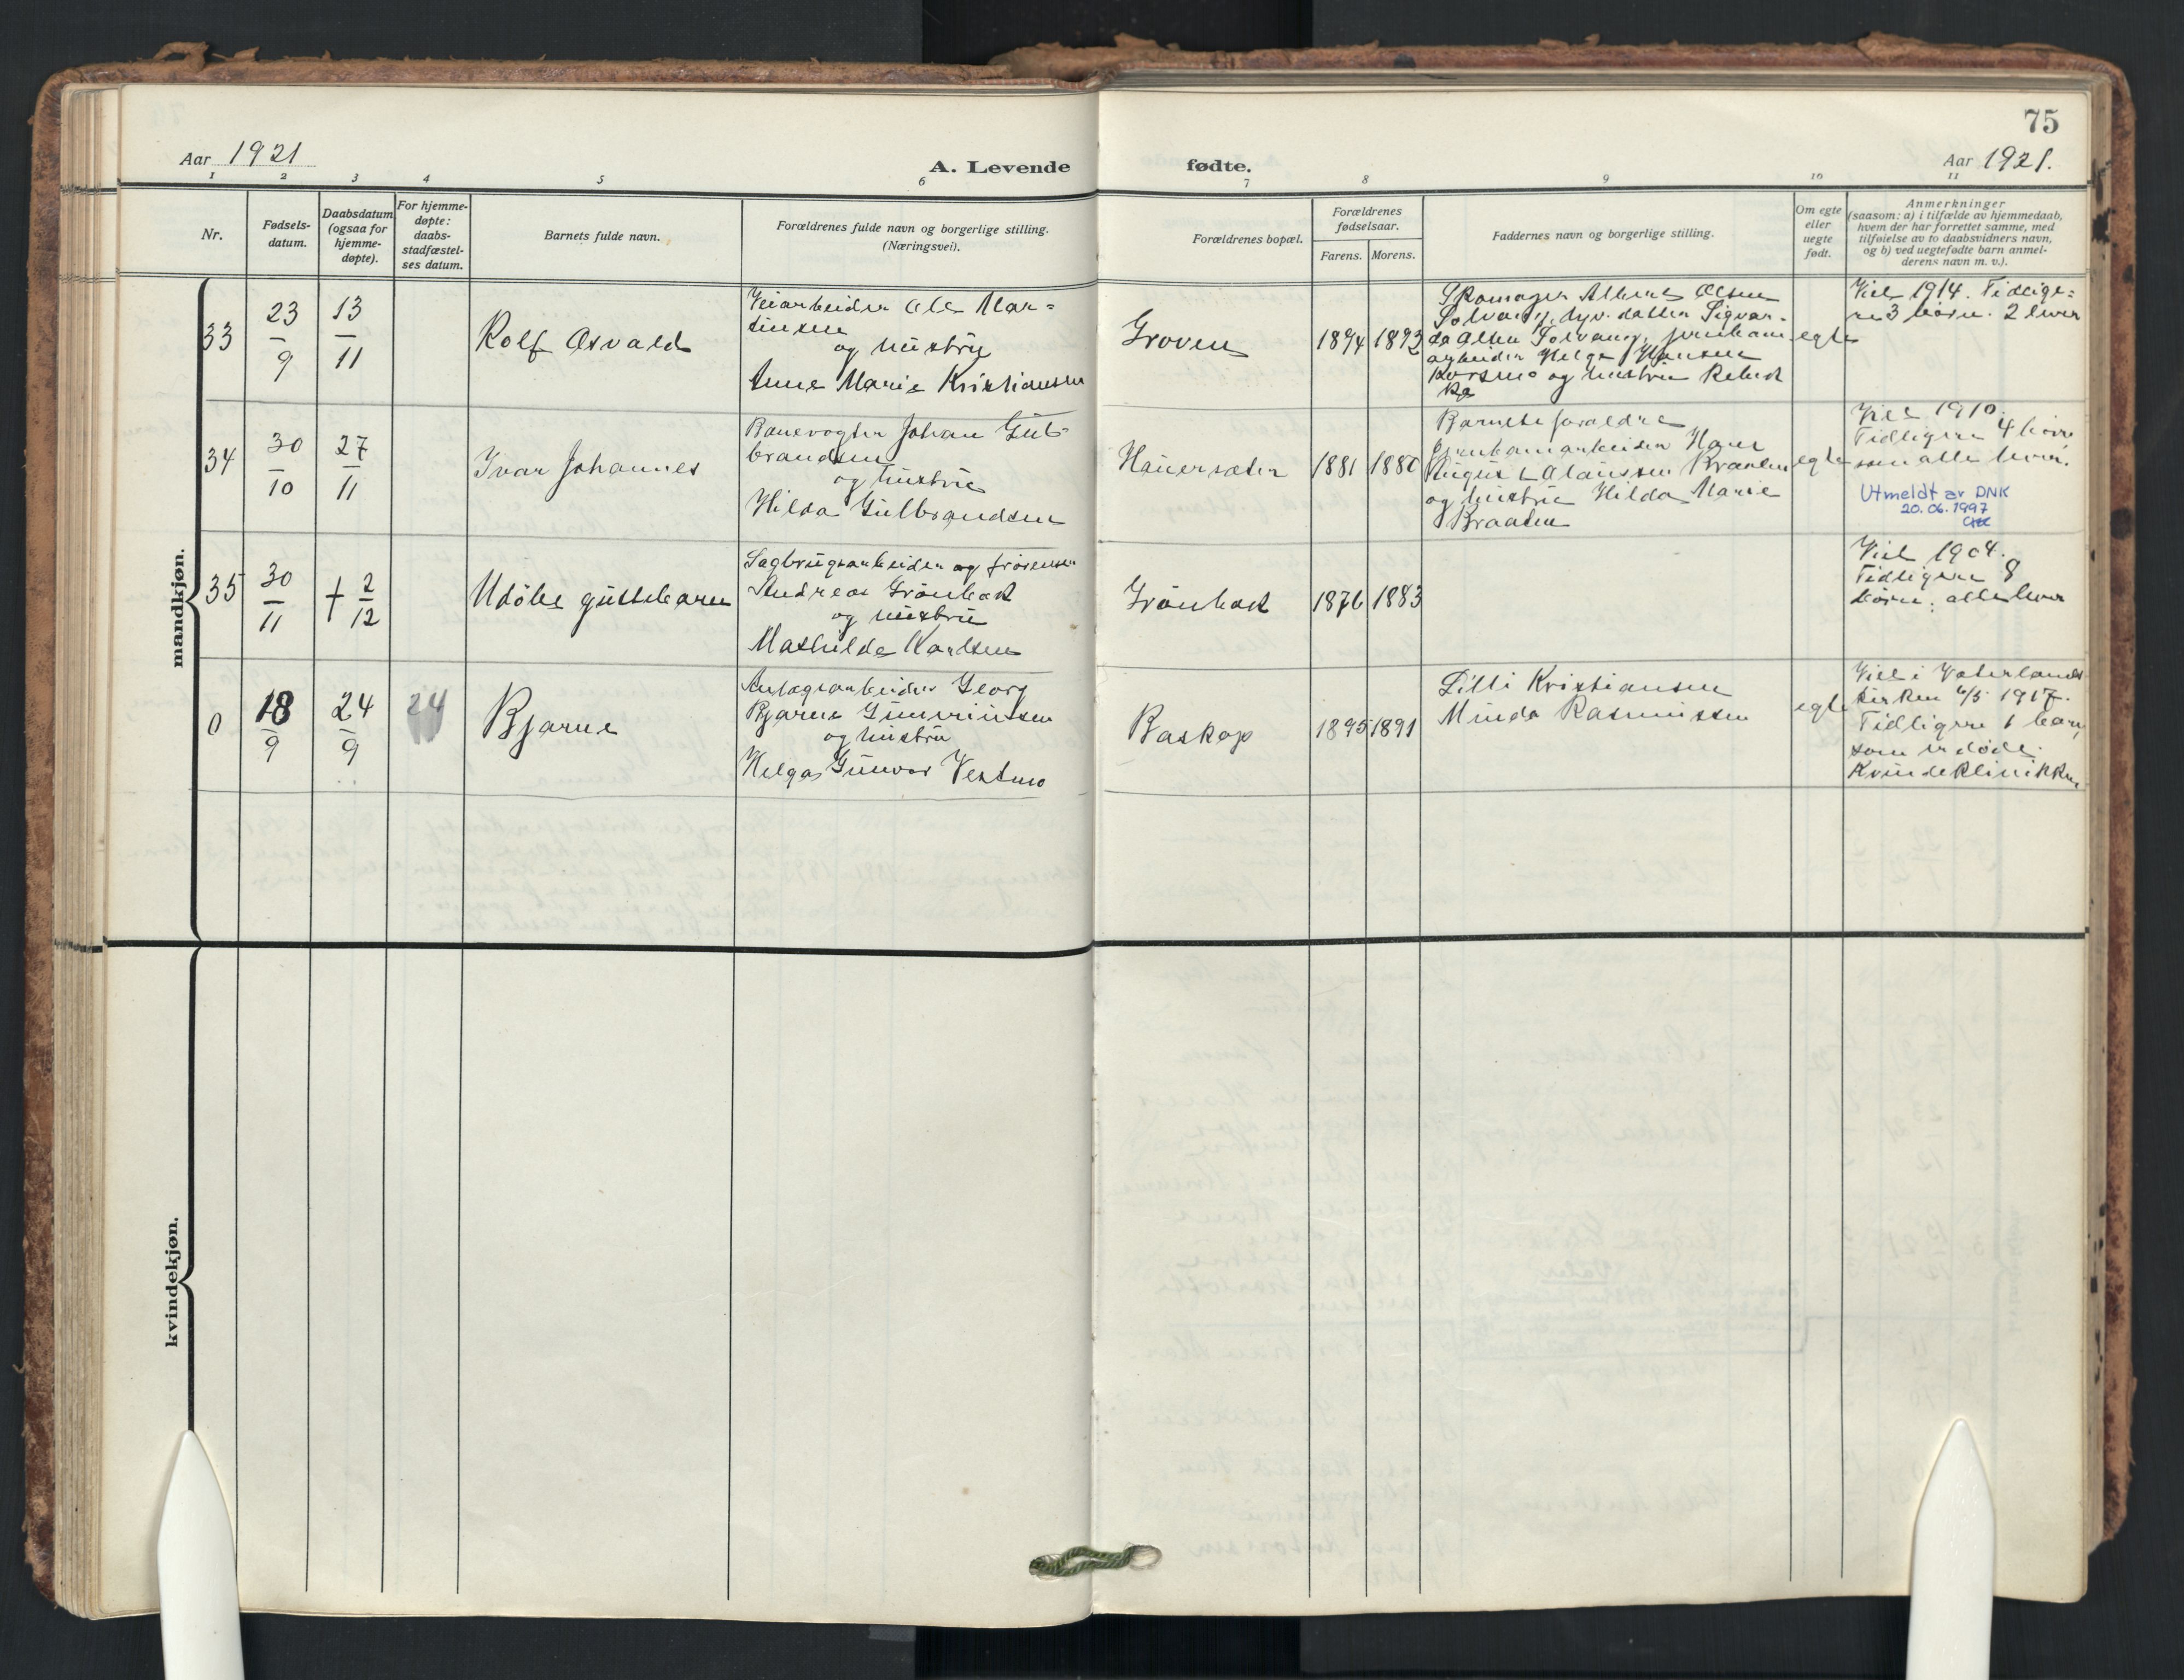 75
Aar 1921
A. Levende
fødte.
Aar 1921.
1 2 3 4 5 6 7 8 9 10 11
Nr.
Fødsels-
datum.
Daabsdatum
(ogsaa for
hjemme-
døpte).
For hjemme-
døpte:
daabs-
stadfæstel-
ses datum.
Barnets fulde navn.
Forældrenes fulde navn og borgerlige stilling.
(Næringsvei).
Forældrenes bopæl.
Forældrenes
fødselsaar.
Farens. Morens.
Faddernes navn og borgerlige stilling.
Om egte
eller
uegte
født.
Anmerkninger
(saasom: a) i tilfælde av hjemmedaab,
hvem der har forrettet samme, med
tilføielse av to daabsvidners navn,
og b) ved uegtefødte barn anmel-
derens navn m. v.).
mandkjøn.
33
23
9
13
11
Rolf Osvald
Veiarbeider Ole Mar-
tinsen
og hustru
Anne Marie Kristiansen
Groven
1894 1893
Skomager Albert Olsen
Solvang, hjv. datter Sigvar-
da Olsen Solvang, jernbane
arbeider Helge Hansen
Korsmo og hustru Rebek
ka
egte
Viel 1914. Tidlige-
re 3 børn. 2 lever
34
30
10
27
11
Ivar Johannes
Banevogter Johan Gul-
brandsen
og hustru
Hilda Gulbrandsen
Hauersæter
1881 1880
Barnets forældre
Jernbanearbeider Hans
August Olaussen Braaten
og hustru Hilda Marie
Braaten
egte
Viel 1910.
Tidligere 4 børn
som alle lever.
Utmeldt av DNK
20.06.1997
35
30
11
† 2
12
Udøbt guttebarn
Sagbrugsarbeider og
Andreas Grønbæk
og hustru
Mathilde Karlsen
Grønbæk
1876 1883
Viel 1904.
Tidligere 8
børn; alle lever
0
18
9
24
9
24
Bjarne
Anlægsarbeider Georg
Bjarne Guneriussen
og hustru
Helga Gunvor Vestmo
Baskop
1895 1891
Lilli Kristiansen
Minda Rasmussen
egte
Viel i Vaterlands
kirken 6/5 1917.
Tidligere 1 barn,
som er døde.
Kvindeklinikken
kvindekjøn.